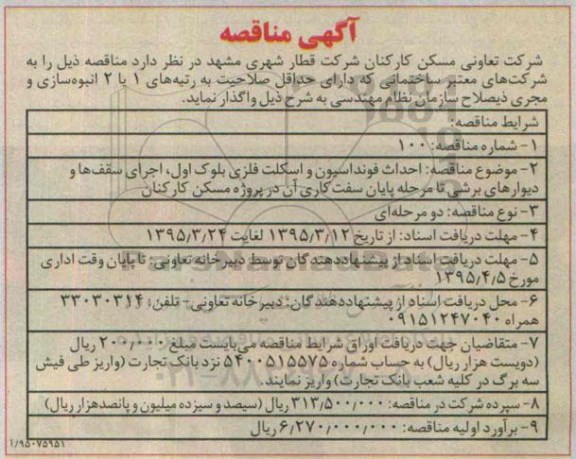 آگهی مناقصه
شرکت تعاونی مسکن کارکنان شرکت قطار شهری مشهد در نظر دارد مناقصه ذیل را به
شرکت‌های معتبر ساختمانی که دارای حداقل صلاحیت به رتبه‌های ۱ یا ۲ انبوه‌سازی و
مجری ذیصلاح سازمان نظام مهندسی به شرح ذیل واگذار نماید.
شرایط مناقصه:
۱- شماره مناقصه: ۱۰۰
۲- موضوع مناقصه: احداث فونداسیون و اسکلت فلزی بلوک اول، اجرای سقف‌ها و
دیوارهای برشی تا مرحله پایان سفت‌کاری آن در پروژه مسکن کارکنان
۳- نوع مناقصه: دو مرحله‌ای
۴- مهلت دریافت اسناد: از تاریخ ۱۳۹۵/۳/۱۲ لغایت ۱۳۹۵/۳/۲۴
۵- مهلت دریافت اسناد از پیشنهاددهندگان توسط دبیرخانه تعاونی: تا پایان وقت اداری
مورخ ۱۳۹۵/۴/۵
۶- محل دریافت اسناد از پیشنهاددهندگان: دبیرخانه تعاونی- تلفن: ۳۳۰۳۰۳۱۴
همراه ۰۹۱۵۱۲۴۷۰۴۰
۷- متقاضیان جهت دریافت اوراق شرایط مناقصه می‌بایست مبلغ ۲۰۰,۰۰۰ ریال
(دویست هزار ریال) به حساب شماره ۵۴۰۰۵۱۵۵۷۵ نزد بانک تجارت (واریز طی فیش
سه برگ در کلیه شعب بانک تجارت) واریز نمایند.
۸- سپرده شرکت در مناقصه: ۳۱۳,۵۰۰,۰۰۰ ریال (سیصد و سیزده میلیون و پانصدهزار ریال)
۹- برآورد اولیه مناقصه: ۶,۲۷۰,۰۰۰,۰۰۰ ریال
۱/۹۵۰۷۵۹۵۱